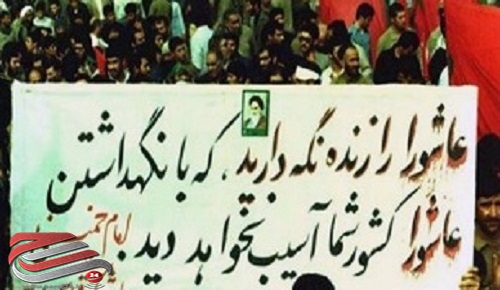 عاشورا را زنده نگه دارید، که با نگهداشتن
عاشورا کشور شما آسیب نخواهد دید.
امام خمینی
24